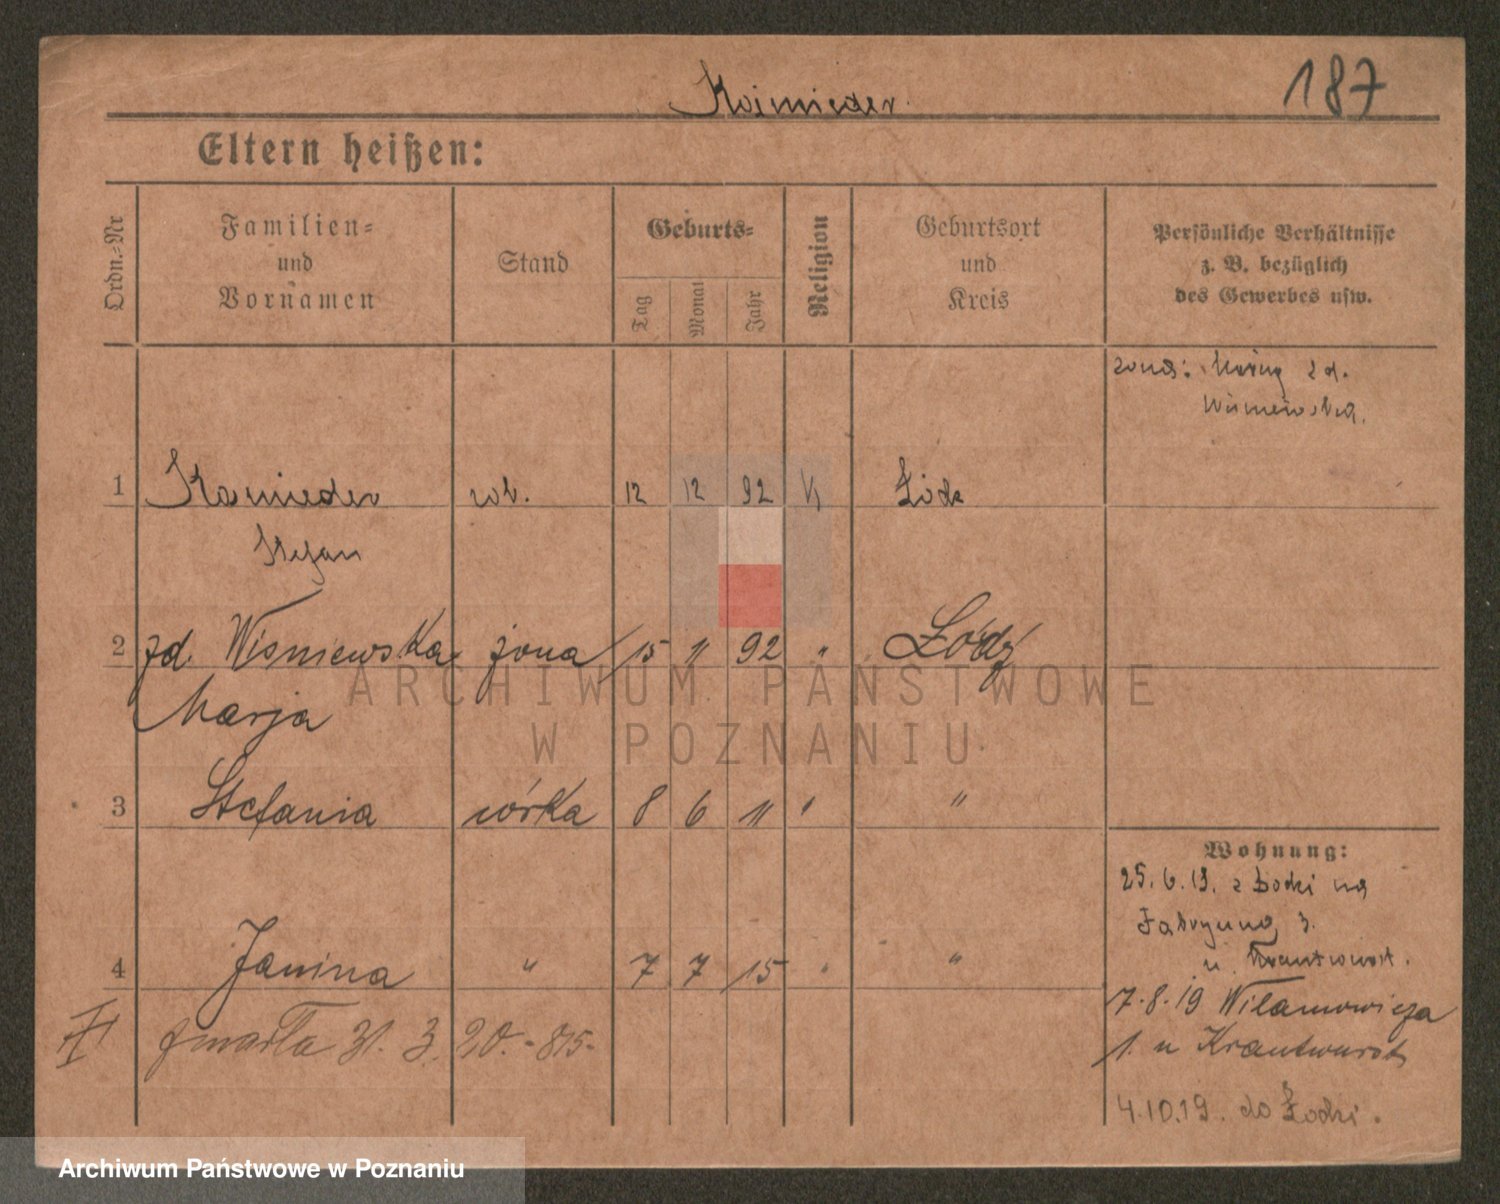 Kaźmieder
187
Eltern heißen:
Ordn.=Nr
Familien=
und
Vornamen
Stand
Geburts=
Tag
Monat
Jahr
Religion
Geburtsort
und
Kreis
Persönliche Verhältnisse
z. B. bezüglich
des Gewerbes usw.
żona: Marja zd.
Wiśniewska.
1 Kaźmieder rob. 12 12 92 Łódź
Stefan
2 zd. Wiśniewska żona 15 11 92 " Łódź
Marja
3 Stefania córka 8 6 11 " "
Wohnung:
25.6.19. z Łodzi na
Fabryczną 3.
u Krantwurst.
4 Janina " 7 7 15 " "
7.8.19 Wilamowicza
1. u Krantwurst
zmarła 31. 3. 20.-815-
4.10.19. do Łodzi.
ARCHIWUM PAŃSTWOWE
W POZNANIU
Archiwum Państwowe w Poznaniu